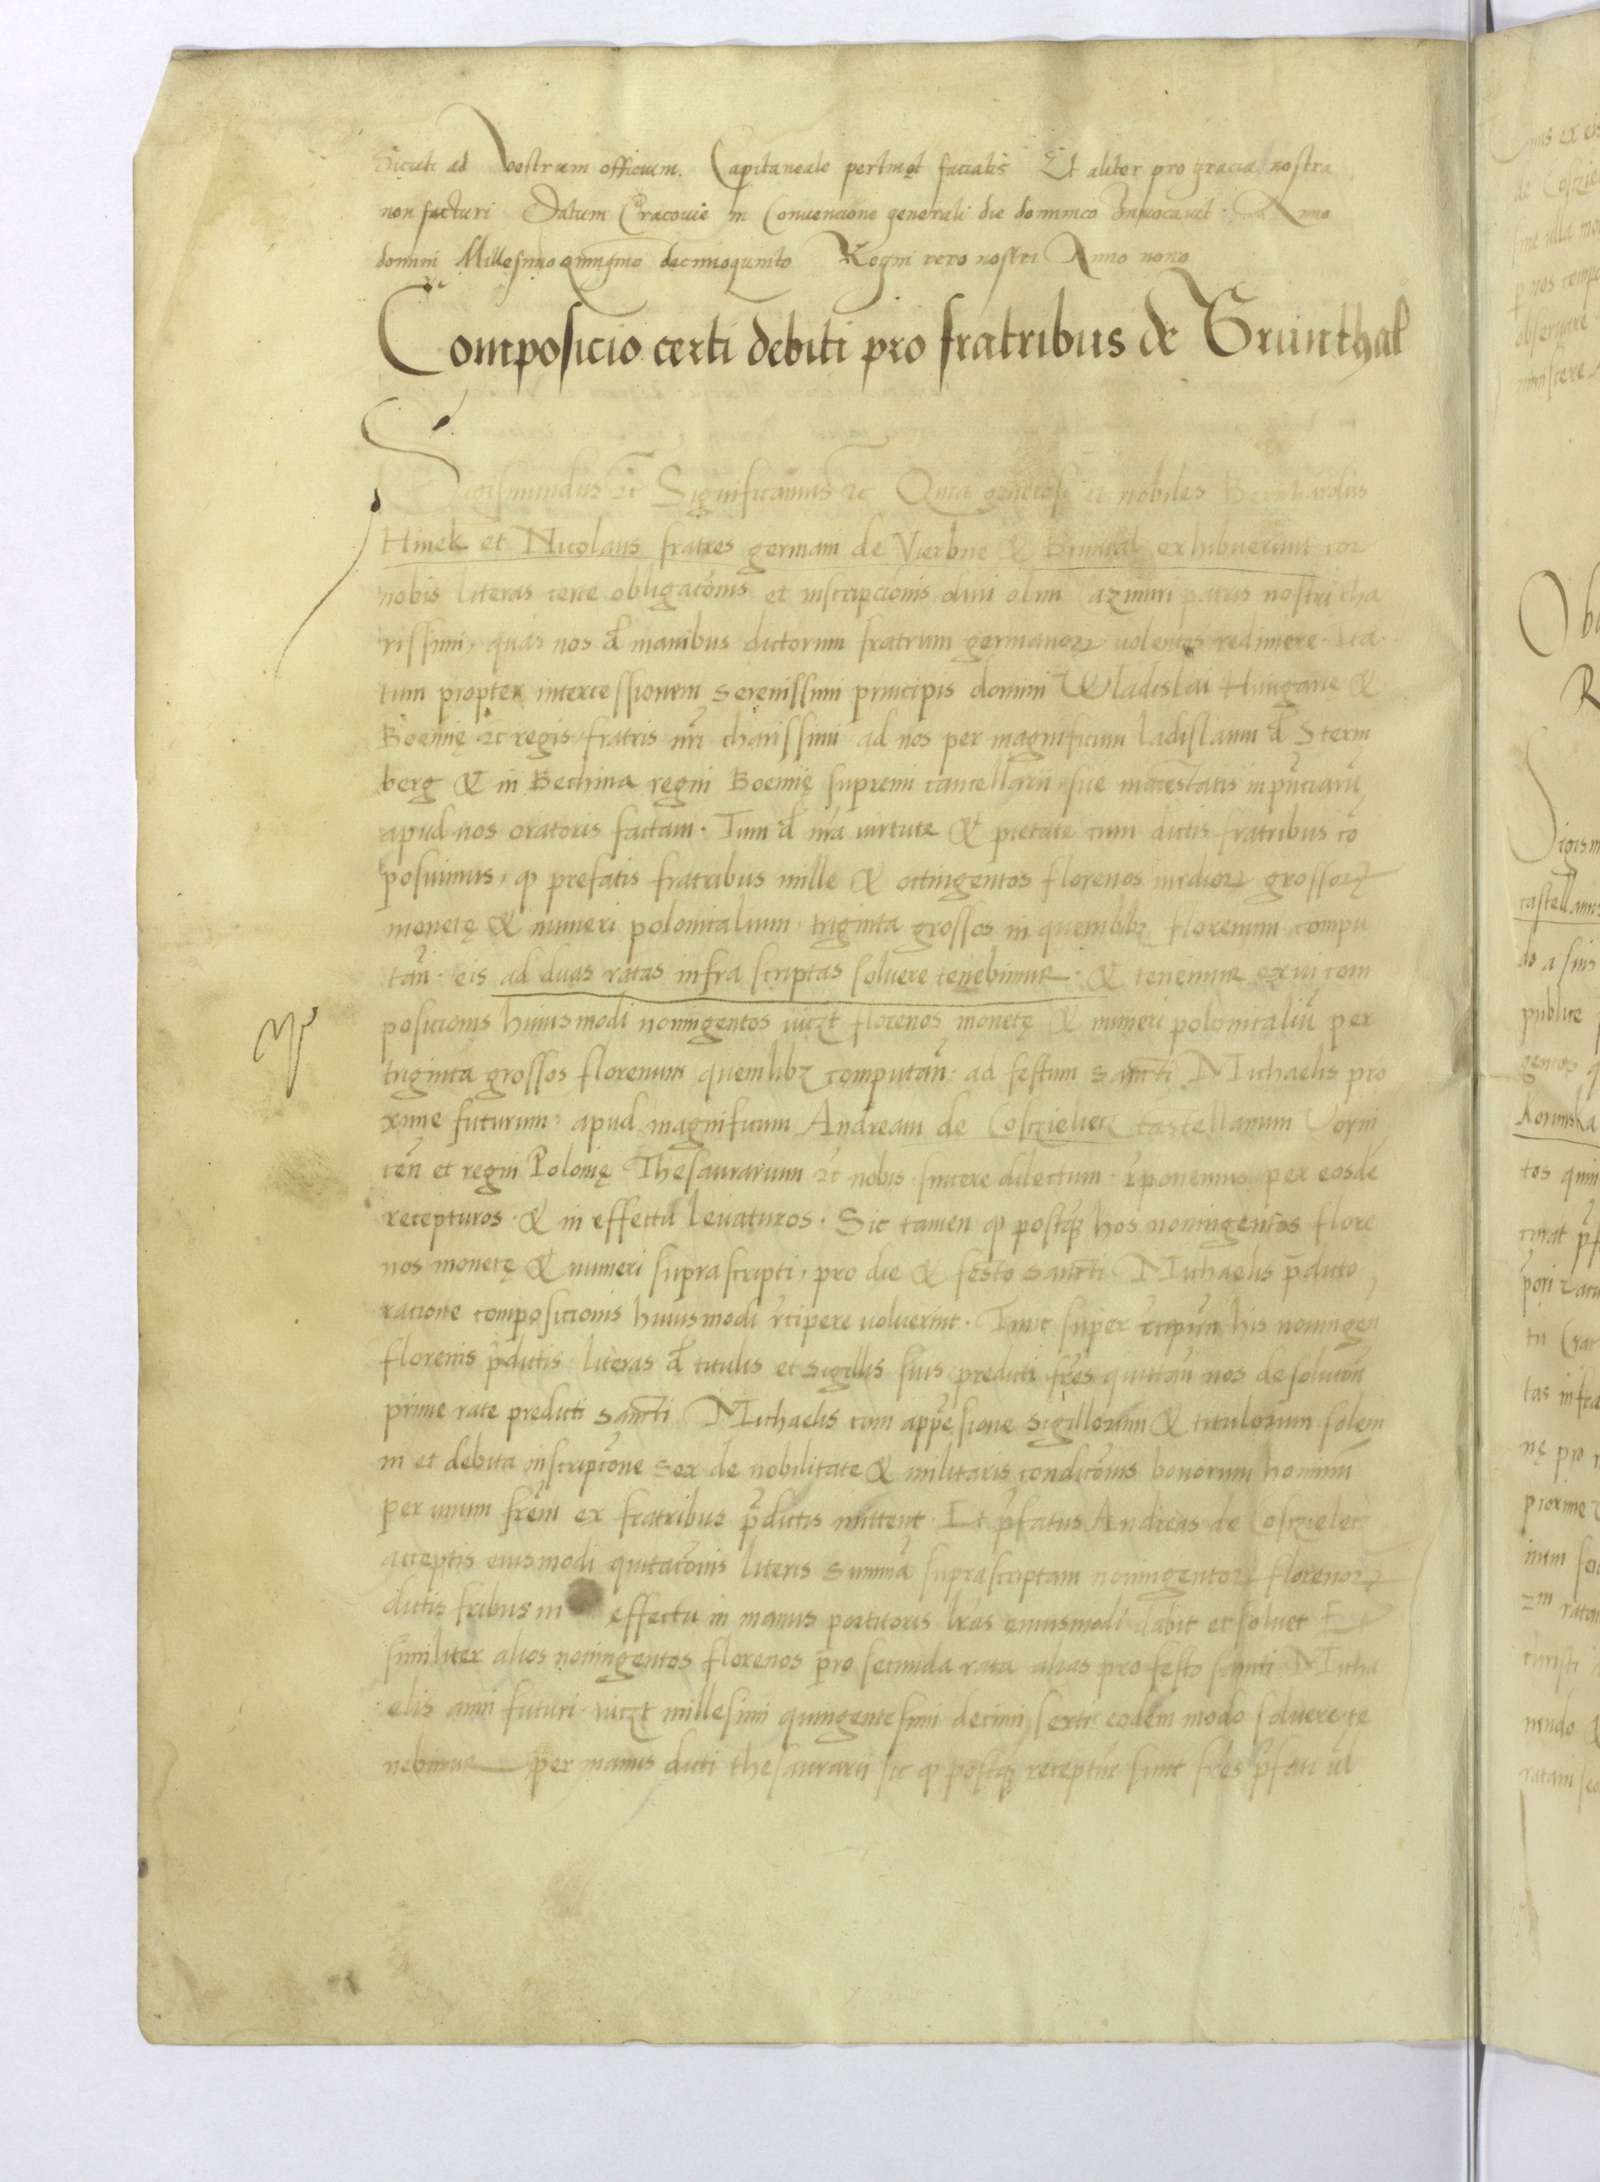 Sicuti ad Vestrum officium Capitaneale pertinet faciatis Et aliter pro gracia nostra
non facturi Datum Cracovie in Convencione generali die dominico Invocavit. Anno
domini Millesimo quingmo decimoquinto Regni vero nostri Anno nono
Composicio certi debiti pro fratribus de Grunthal
Sigismundus etc Significamus etc Quia generosi et nobiles Bernhardus
Hinek et Nicolaus fratres germani de Vierbne & Bruntal exhibuerunt cor
nobis literas certe obligatōnis et inscripcionis divi olim Cazimiri patris nostri cha
rissimi, quas nos d manibus dictorum fratrum germanoꝝ volentes redimere. Ita
tum propter intercessionem serenissimi principis domini Wladislai Hungarie &
Boemię etc regis fratris nri charissimi ad nos per magnificum ladislaum d Stern
berg & in Bechina regni Boemię supremi cancellarii sue maiestatis in pnciarū
apud nos oratoris factam. Tum d nra virtute & pietate cum dictis fratribus cō
posuimus, ꝙ prefatis fratribus mille & octingentos florenos medioꝝ grossoꝝ
monetę & numeri polonicalium triginta grossos in quemlibꝫ florenum compu
tan̄. eis ad duas ratas infra scriptas solvere tenebimur & tenemur ex vi com
posicionis huiusmodi noningentos viczt florenos monetę & numeri polonicaliū per
triginta grossos florenum quemlibꝫ computan̄. ad festum sancti Michaelis pro
xime futurum, apud magnificum Andream de Cosczielecz castellanum Voyni
cen̄ et regni Polonię Thesaurarium etc nobis sincere dilectum. rponemus per eosdē
recepturos. & in effectu levaturos. Sic tamen ꝙ postqꝫ hos noningentos flore
nos monetę & numeri suprascripti, pro die & festo sancti Michaelis p̄dicto,
racione composicionis huiusmodi rcipere voluerint. Tunc super rcipiūn his noningen
florenis p̄dictis literas d titulis et sigillis suis predicti frēs quictan̄ nos de solucōn
prime rate predicti sancti Michaelis cum appēsione sigillorum & titulorum solem
ni et debita inscripcōne sex de nobilitate & militaris condicōnis bonorum hominū
per unum frēm ex fratribus p̄dictis mittent. Et p̄fatus Andreas de Cosczielec
acceptis eiusmodi quitacōnis literis summā suprascriptam noningentoꝝ florenoꝝ
dictis fribus in effectu in manus portitoris lrās eiusmodi dabit et solvet Et
similiter alios noningentos florenos pro secunda rata alias pro festo sancti Micha
elis anni futuri viczt millesimi quingentesimi decimi sexti eodem modo solvere te
nebimur per manus dicti thesaurarii sic ꝙ postqꝫ recepturi sint frēs p̄fati ul